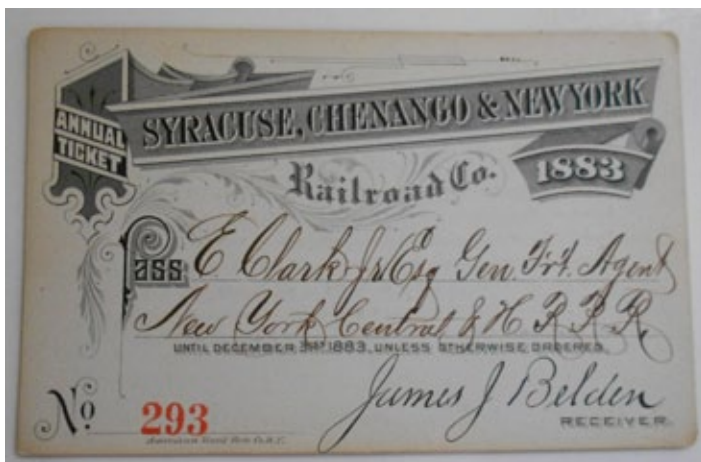 ANNUAL TICKET
SYRACUSE, CHENANGO & NEW YORK
Railroad Co. 1883
Pass E Clark Jr Esq Gen. Frt. Agent
New York Central & H R. R. R.
UNTIL DECEMBER 31ST 1883, UNLESS OTHERWISE ORDERED.
James J Belden
RECEIVER.
No 293
American Bank Note Co. N.Y.